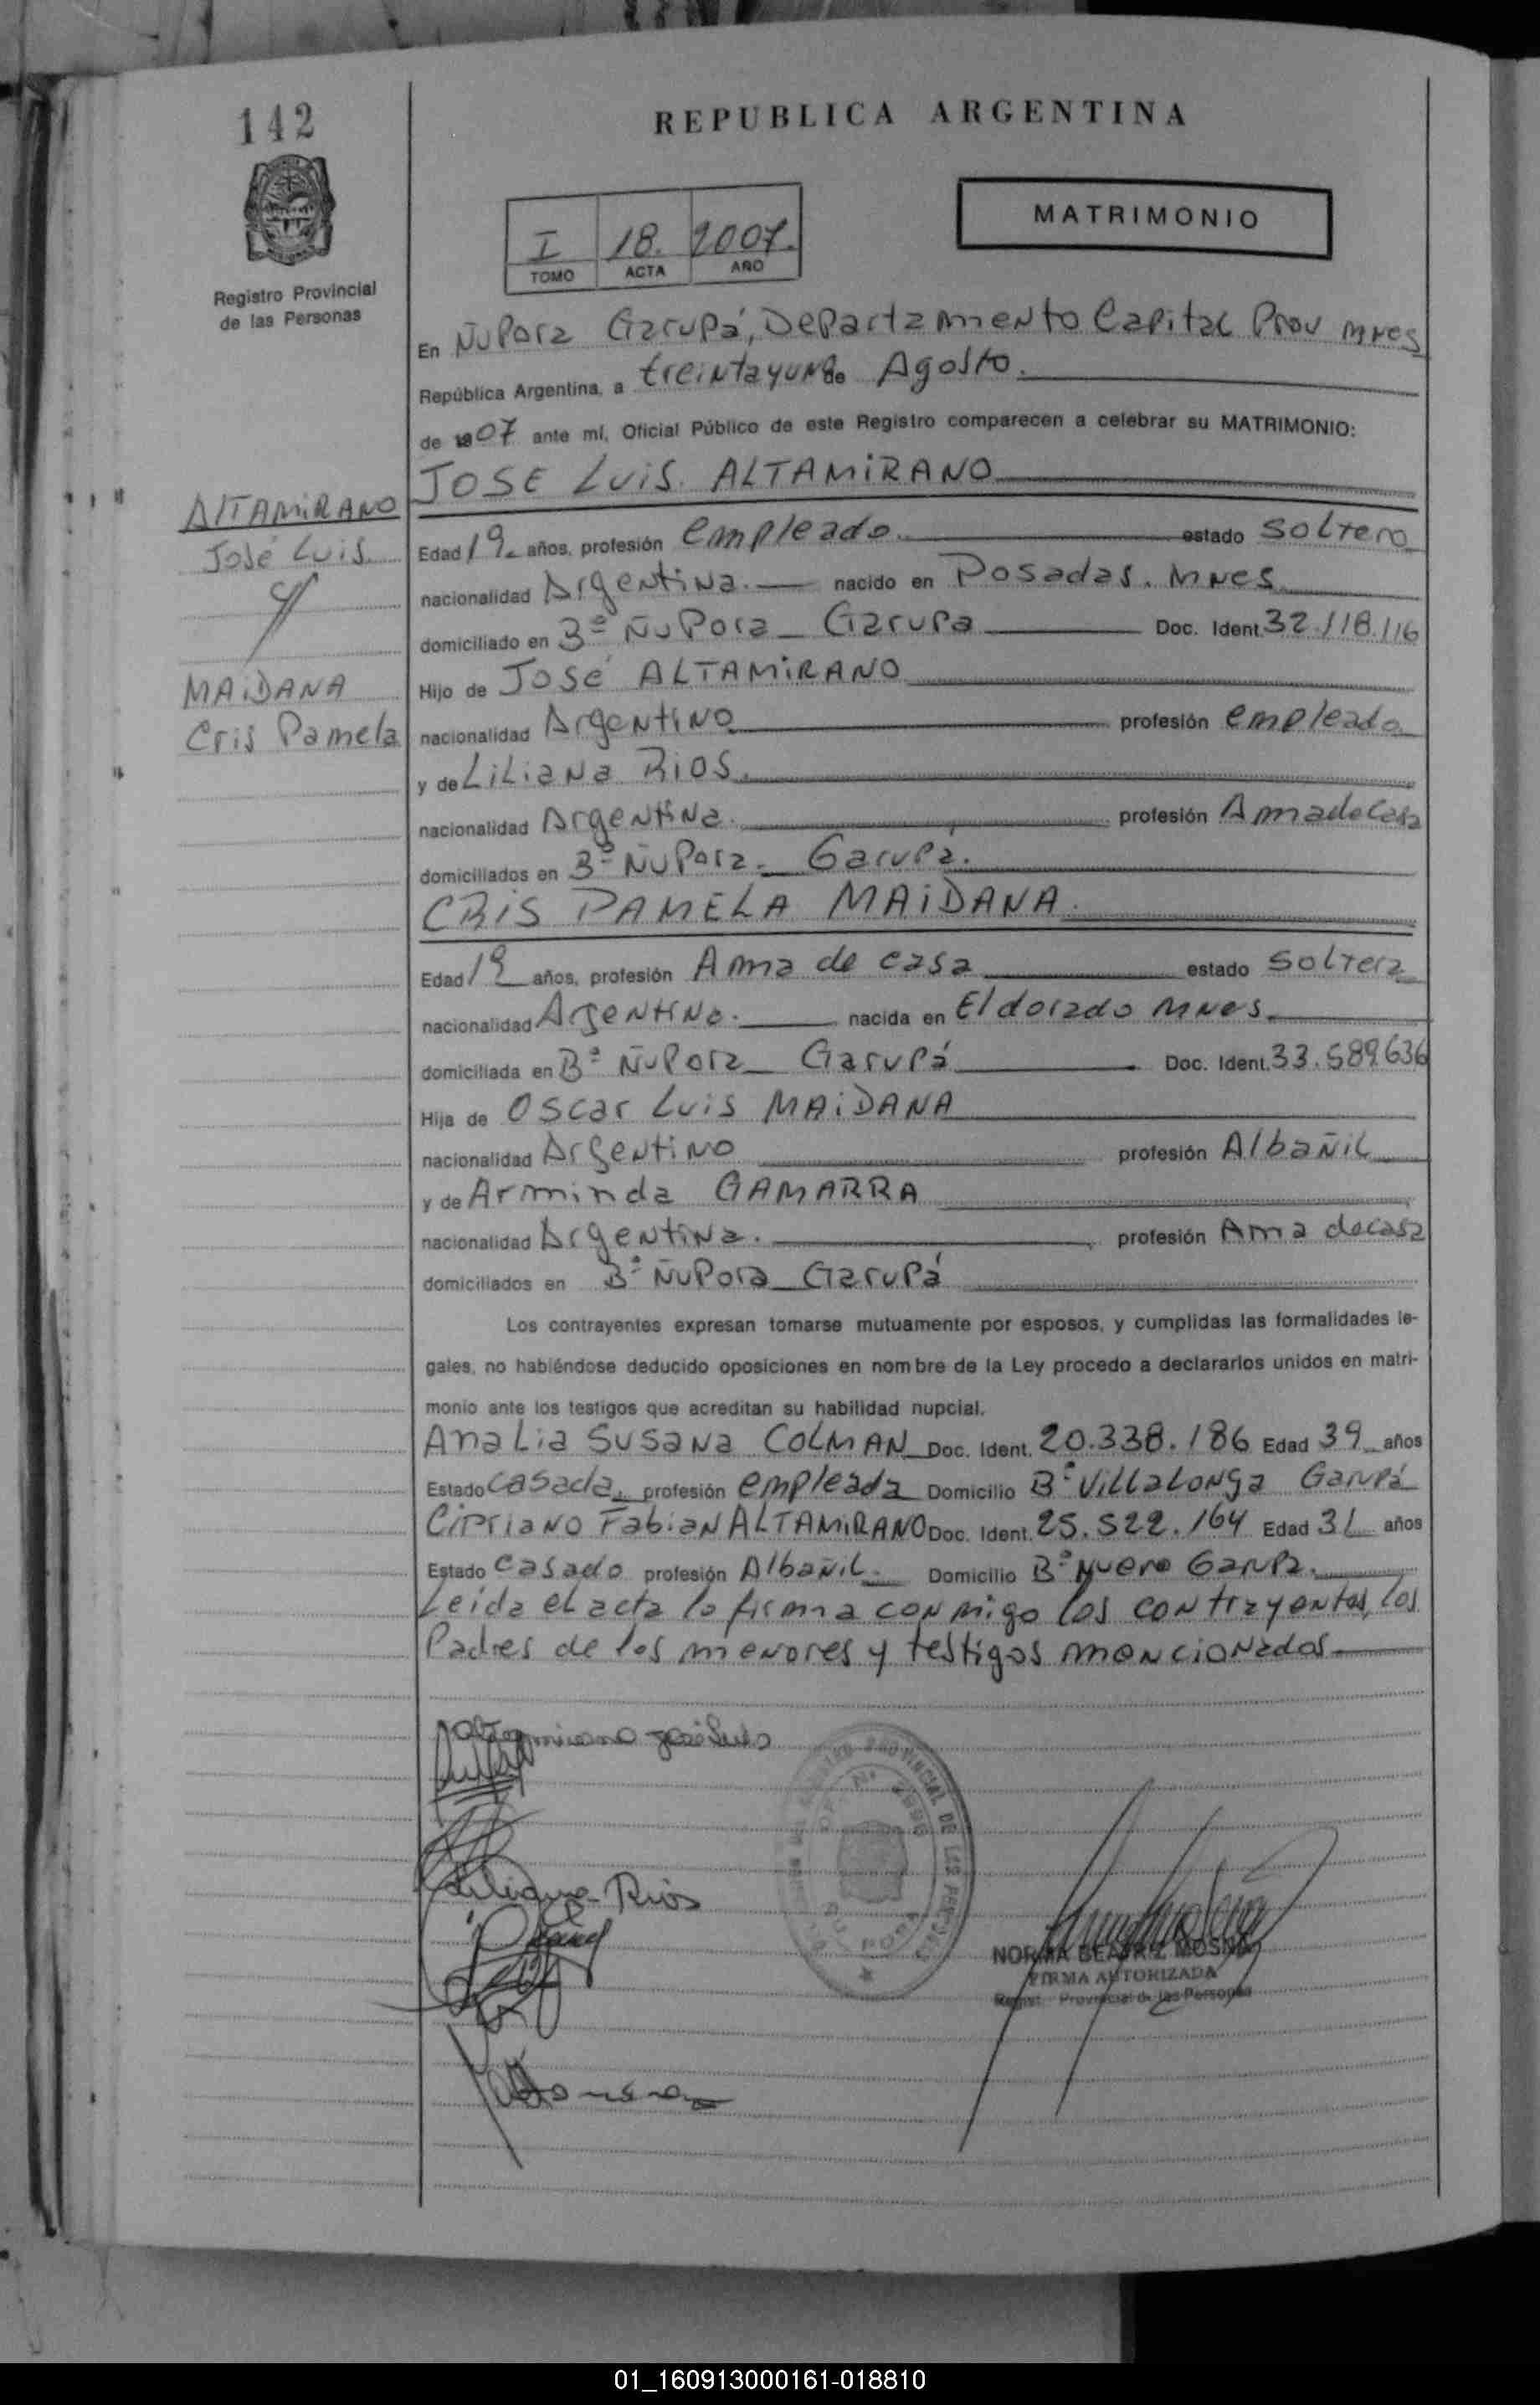 142
REPUBLICA ARGENTINA
MATRIMONIO
I 18. 2007.
TOMO ACTA AÑO
Registro Provincial
de las Personas
En Ñu Pora Garupá, Departamento Capital Prov Mnes
República Argentina, a treintayuno de Agosto.
de 07 ante mí, Oficial Público de este Registro comparecen a celebrar su MATRIMONIO:
JOSE LUIS. ALTAMIRANO
ALTAMIRANO
José Luis
y
MAIDANA
Cris Pamela
Edad 19 años, profesión empleado. estado Soltero
nacionalidad Argentina. nacido en Posadas. Mnes
domiciliado en Bº Ñu Pora - Garupa Doc. Ident. 32.118.116
Hijo de José ALTAMIRANO
nacionalidad Argentino profesión empleado
y de Liliana Rios.
nacionalidad Argentina. profesión Ama de Casa
domiciliados en Bº Ñu Pora. Garupá.
CRIS PAMELA MAIDANA.
Edad 19 años, profesión Ama de casa estado Soltera
nacionalidad Argentina. nacida en Eldorado Mnes.
domiciliada en Bº Ñu Pora - Garupá Doc. Ident. 33.589.636
Hija de Oscar Luis MAIDANA
nacionalidad Argentino profesión Albañil
y de Arminda GAMARRA
nacionalidad Argentina. profesión Ama de casa
domiciliados en Bº Ñu Pora - Garupá
Los contrayentes expresan tomarse mutuamente por esposos, y cumplidas las formalidades le-
gales, no habiéndose deducido oposiciones en nombre de la Ley procedo a declararlos unidos en matri-
monio ante los testigos que acreditan su habilidad nupcial.
Analia Susana COLMAN Doc. Ident. 20.338.186 Edad 39 años
Estado Casada. profesión empleada Domicilio Bº Villalonga Garupá
Cipriano Fabian ALTAMIRANO Doc. Ident. 25.522.164 Edad 31 años
Estado Casado profesión Albañil. Domicilio Bº Nuevo Garupa.
Leida el acta la firma conmigo los contrayentes, los
Padres de los menores y testigos mencionados
Altamirano José Luis
Liliana Rios
NORMA BEATRIZ
FIRMA AUTORIZADA
Regist. Provincial de las Personas
01_160913000161-018810